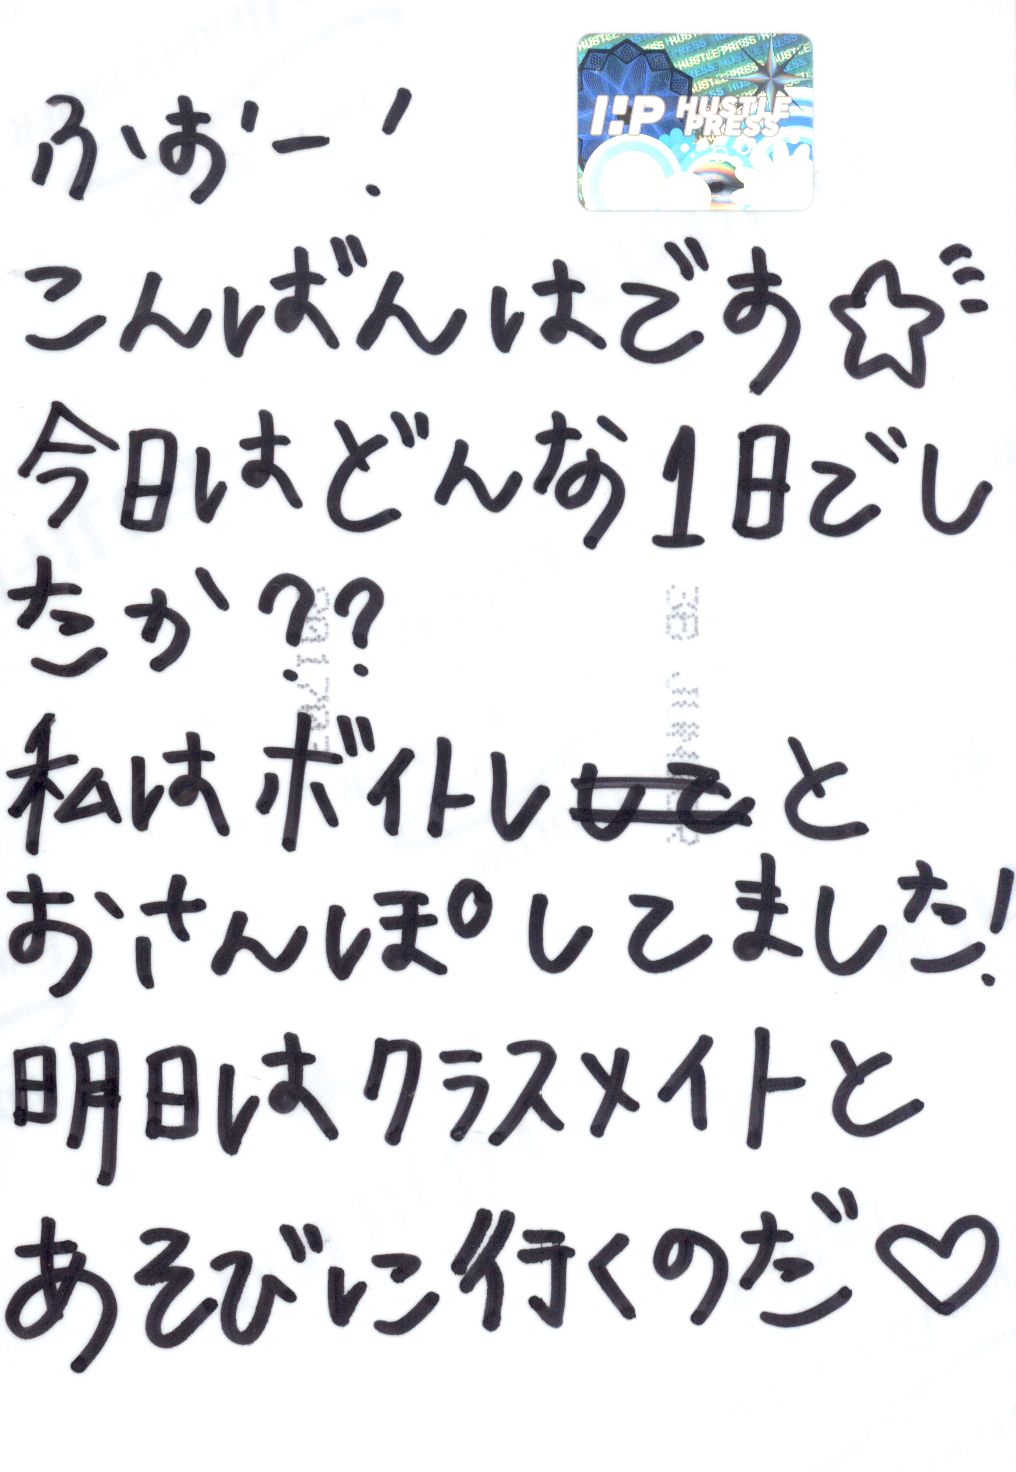 ふおー!
HP HUSTLE PRESS
こんばんはです☆
今日はどんな1日でし
たか??
私はボイトレしてと
おさんぽしてました!
明日はクラスメイトと
あそびに行くのだ♡